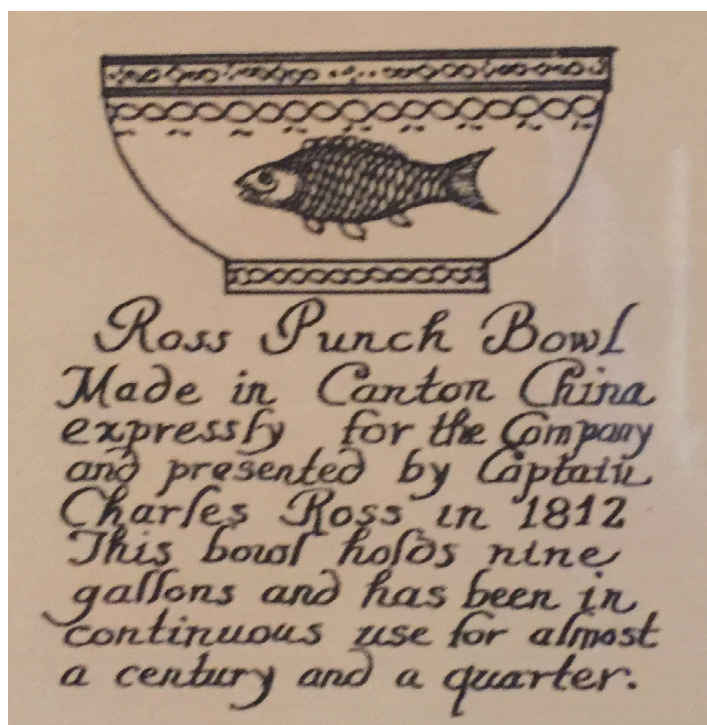 Ross Punch Bowl
Made in Canton China
expressly for the Company
and presented by Captain
Charles Ross in 1812
This bowl holds nine
gallons and has been in
continuous use for almost
a century and a quarter.